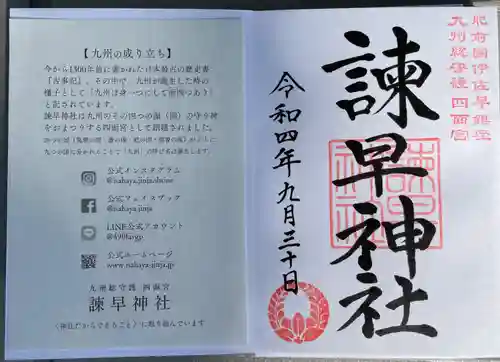 【九州の成り立ち】
今から1300年前に書かれた日本最古の歴史書
『古事記』。その中で、九州が誕生した時の
様子として「九州は身一つにして面四つあり」
と記されています。
諫早神社は九州のその四つの面（国）の守り神
をおまつりする四面宮として創建されました。
公式インスタグラム
公式フェイスブック
@isahaya.jinja
LINE公式アカウント
公式ホームページ
www.isahaya-jinja.jp
九州総守護 四面宮
諫早神社
〈神社だからできること〉に取り組んでいます
肥前国伊佐早鎮座
九州総守護四面宮
諫早神社
諫早神社
令和四年九月三十日